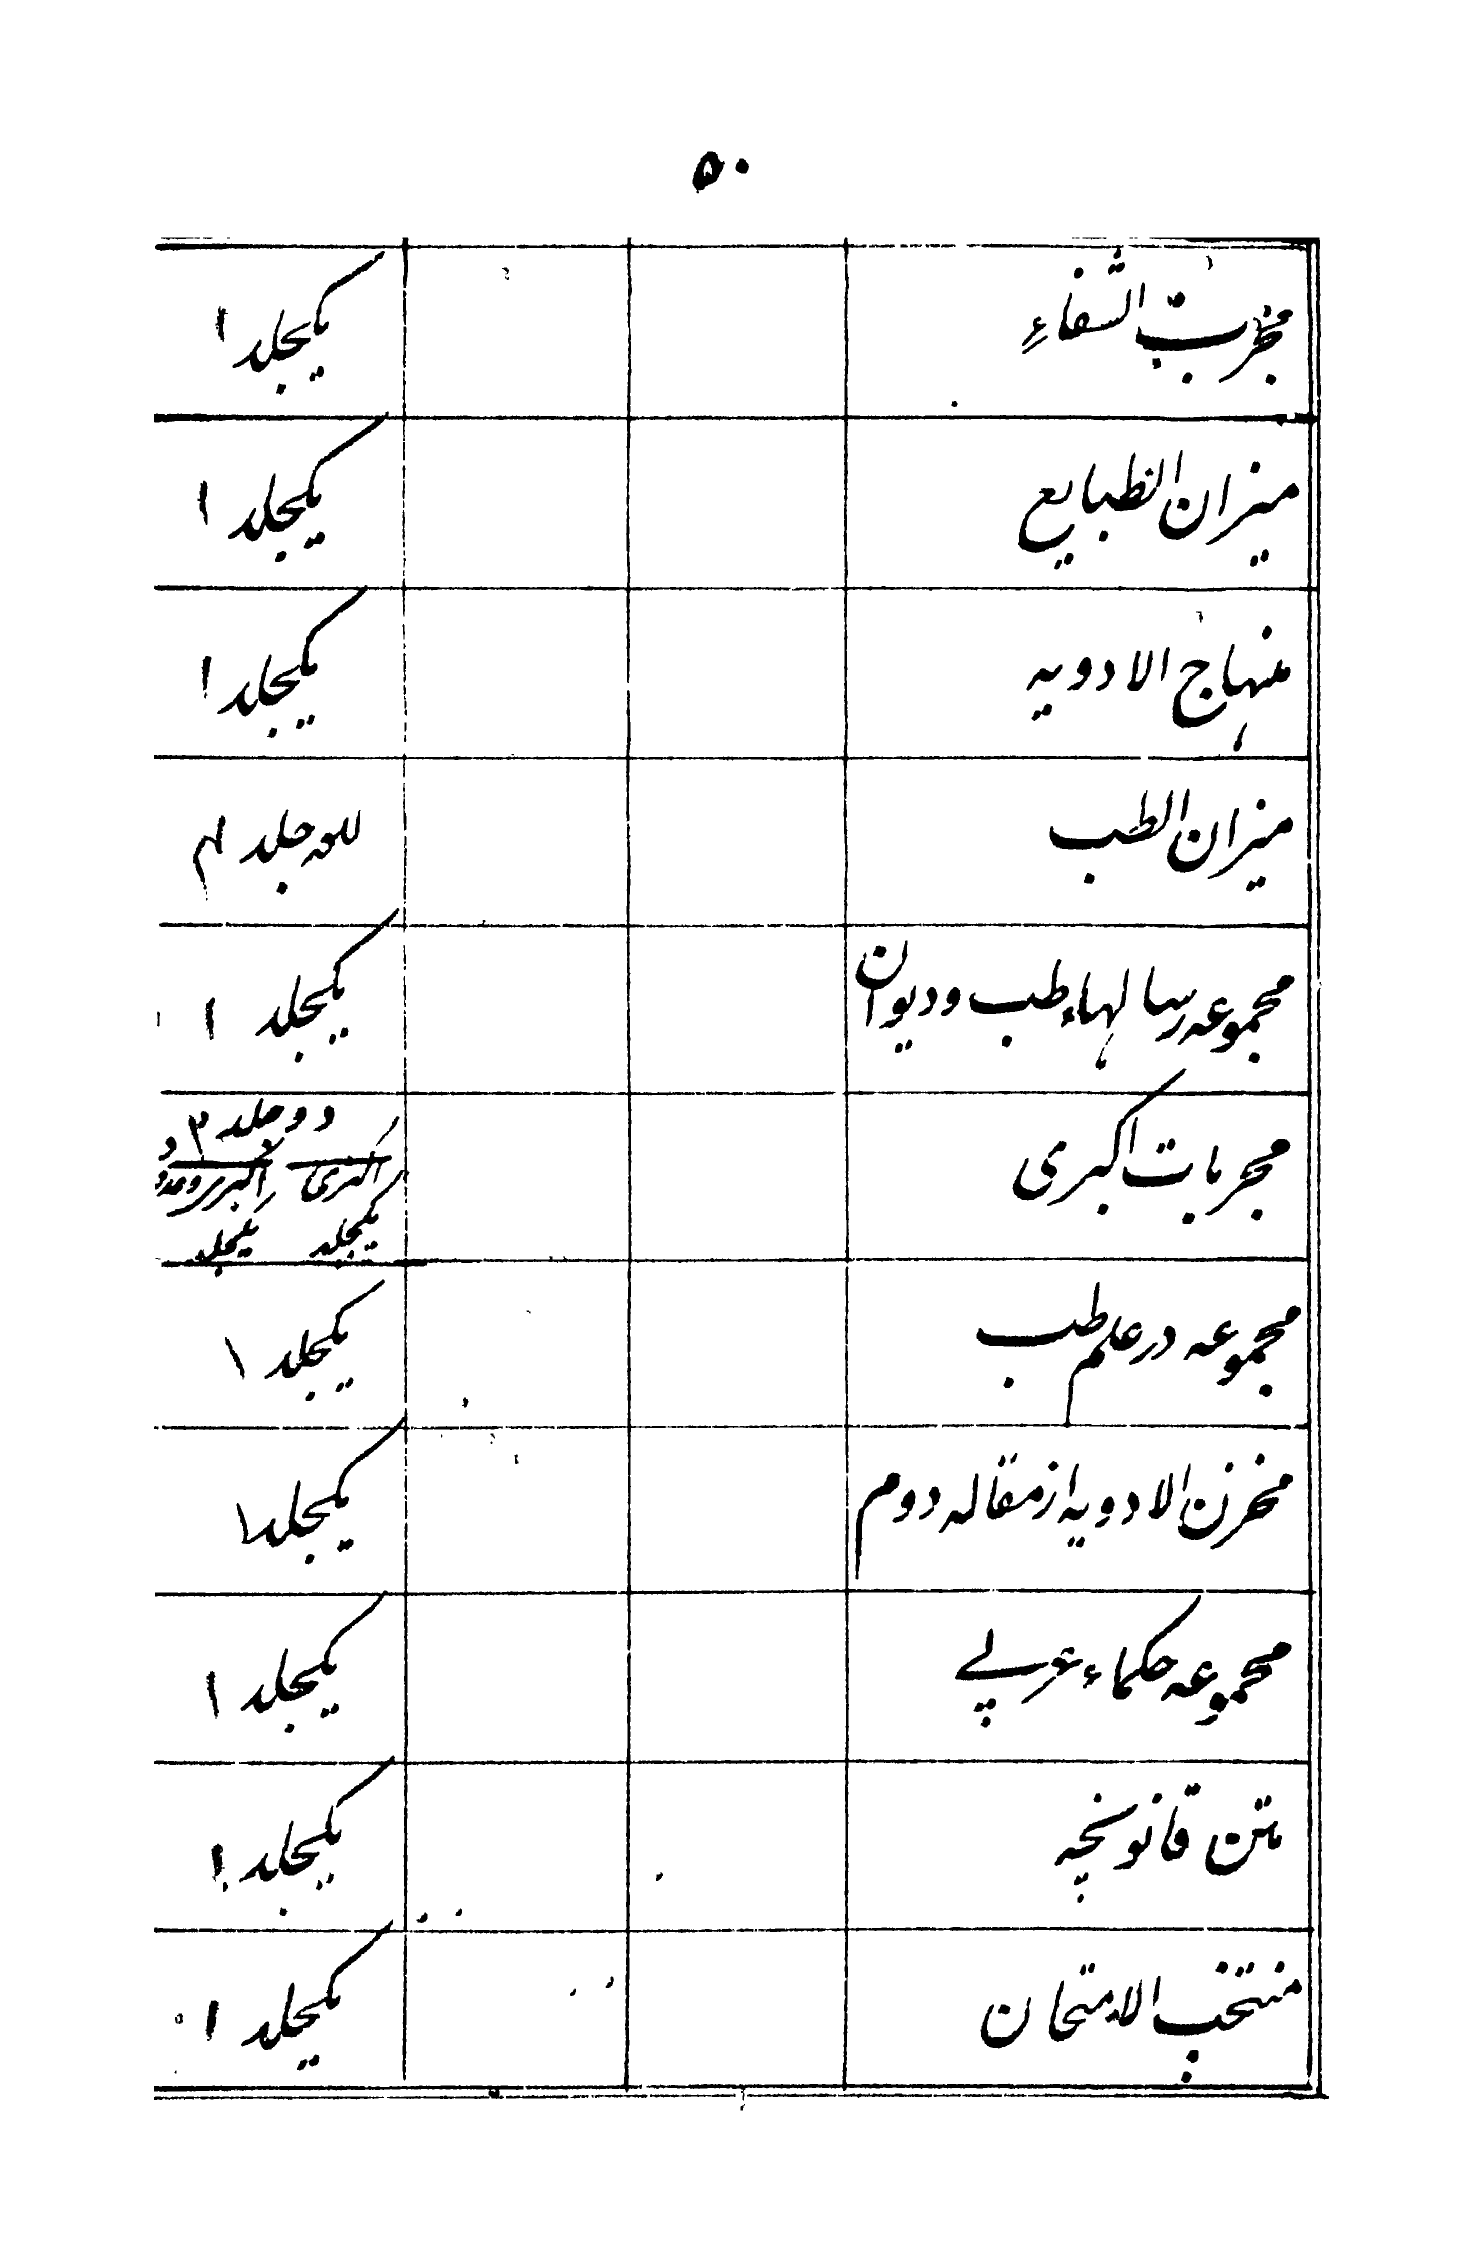 ۵۰
مجربت الشفاء یکجلد ۱
میزان الطبایع یکجلد ۱
منهاج الادویه یکجلد ۱
میزان الطب للعه جلد ۴
مجموعه رسالهاء طب و دیوان یکجلد ۱
مجربات اکبری دو جلد ۲
یکجلد یکجلد
مجموعه در علم طب یکجلد ۱
مخزن الادویه از مقاله دوم یکجلد ۱
مجموعه حکماء عربی یکجلد ۱
متن قانونچه یکجلد ۱
منتخب الامتحان یکجلد ۱